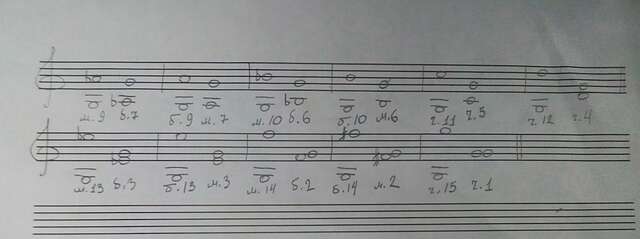 м.9 б.7 б.9 м.7 м.10 б.6 б.10 м.6 ч.11 ч.5 ч.12 ч.4
м.13 б.3 б.13 м.3 м.14 б.2 б.14 м.2 ч.15 ч.1